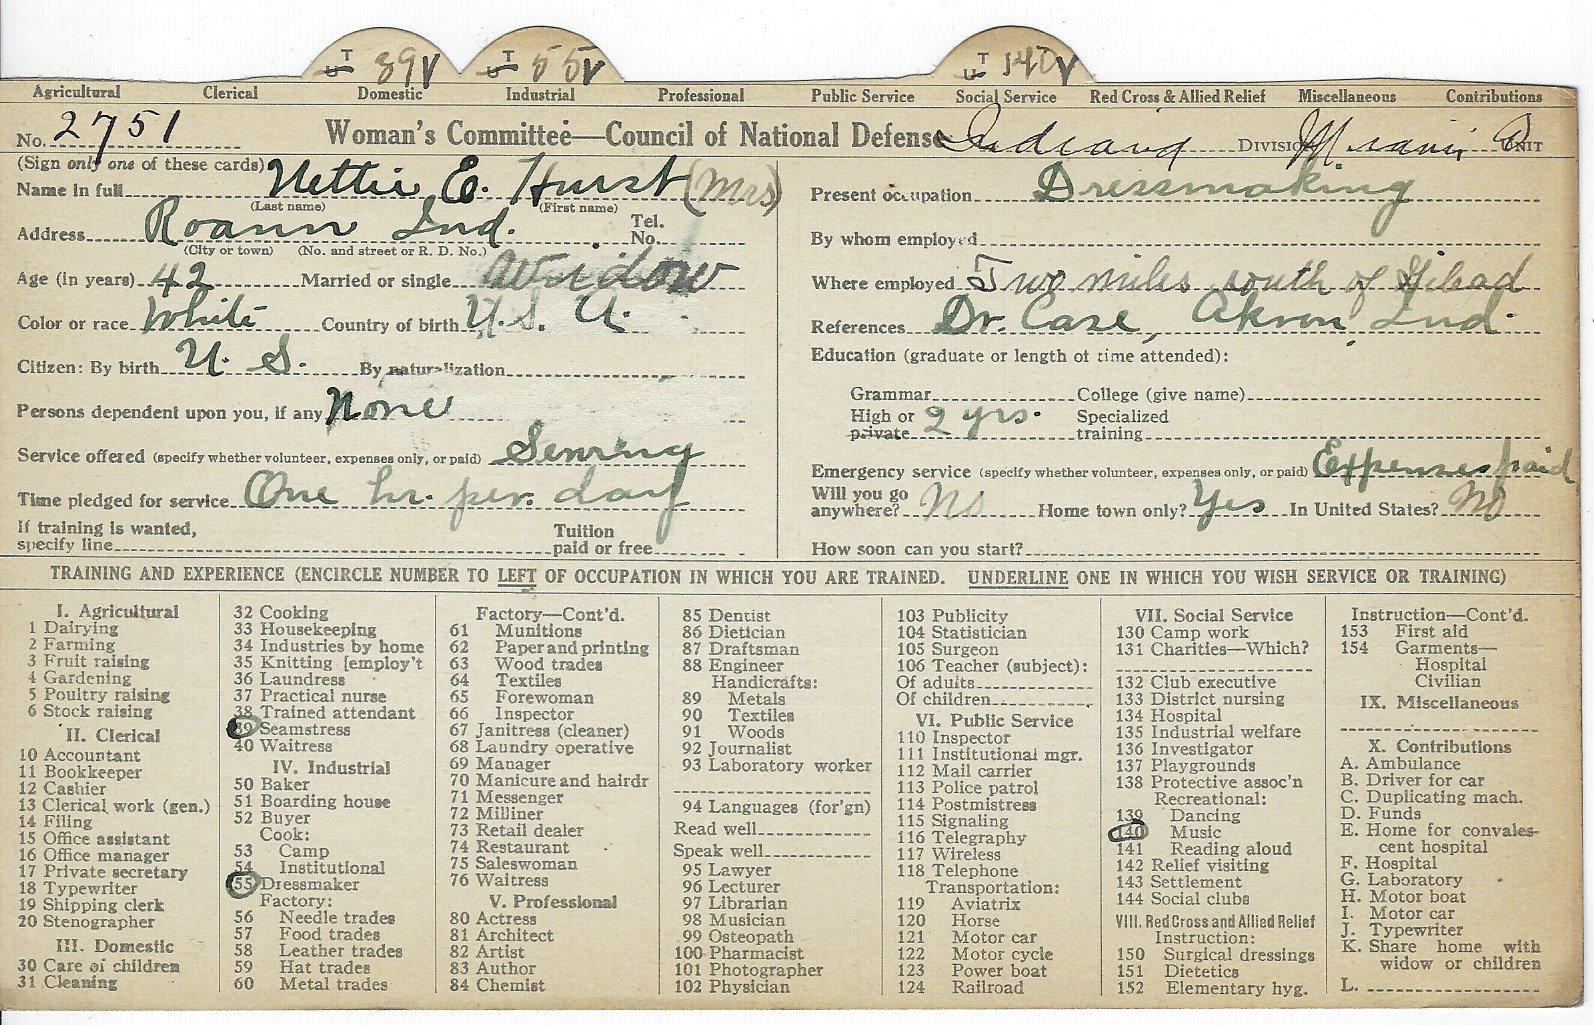 T U 39 V T U 55 V T U 140 V
Agricultural Clerical Domestic Industrial Professional Public Service Social Service Red Cross & Allied Relief Miscellaneous Contributions
No. 2751 Woman's Committee—Council of National Defense Indiana DIVISION Miami UNIT
(Sign only one of these cards)
Name in full Nettie E. Hurst (Mrs)
(Last name) (First name)
Address Roann Ind. Tel. No.
(City or town) (No. and street or R. D. No.)
Age (in years) 42 Married or single Widow
Color or race White Country of birth U. S. A.
Citizen: By birth U. S. By naturalization
Persons dependent upon you, if any None
Service offered (specify whether volunteer, expenses only, or paid) Sewing
Time pledged for service One hr. per. day
If training is wanted, specify line Tuition paid or free
Present occupation Dressmaking
By whom employed
Where employed Two miles south of Gilead
References Dr. Case, Akron, Ind.
Education (graduate or length of time attended):
Grammar College (give name)
High or private 2 yrs. Specialized training
Emergency service (specify whether volunteer, expenses only, or paid) Expenses paid
Will you go anywhere? No Home town only? Yes In United States? No
How soon can you start?
TRAINING AND EXPERIENCE (ENCIRCLE NUMBER TO LEFT OF OCCUPATION IN WHICH YOU ARE TRAINED. UNDERLINE ONE IN WHICH YOU WISH SERVICE OR TRAINING)
I. Agricultural
1 Dairying
2 Farming
3 Fruit raising
4 Gardening
5 Poultry raising
6 Stock raising
II. Clerical
10 Accountant
11 Bookkeeper
12 Cashier
13 Clerical work (gen.)
14 Filing
15 Office assistant
16 Office manager
17 Private secretary
18 Typewriter
19 Shipping clerk
20 Stenographer
III. Domestic
30 Care of children
31 Cleaning
32 Cooking
33 Housekeeping
34 Industries by home
35 Knitting [employ't
36 Laundress
37 Practical nurse
38 Trained attendant
39 Seamstress
40 Waitress
IV. Industrial
50 Baker
51 Boarding house
52 Buyer
Cook:
53 Camp
54 Institutional
55 Dressmaker
Factory:
56 Needle trades
57 Food trades
58 Leather trades
59 Hat trades
60 Metal trades
Factory—Cont'd.
61 Munitions
62 Paper and printing
63 Wood trades
64 Textiles
65 Forewoman
66 Inspector
67 Janitress (cleaner)
68 Laundry operative
69 Manager
70 Manicure and hairdr
71 Messenger
72 Milliner
73 Retail dealer
74 Restaurant
75 Saleswoman
76 Waitress
V. Professional
80 Actress
81 Architect
82 Artist
83 Author
84 Chemist
85 Dentist
86 Dietician
87 Draftsman
88 Engineer
Handicrafts:
89 Metals
90 Textiles
91 Woods
92 Journalist
93 Laboratory worker
94 Languages (for'gn)
Read well
Speak well
95 Lawyer
96 Lecturer
97 Librarian
98 Musician
99 Osteopath
100 Pharmacist
101 Photographer
102 Physician
103 Publicity
104 Statistician
105 Surgeon
106 Teacher (subject):
Of adults
Of children
VI. Public Service
110 Inspector
111 Institutional mgr.
112 Mail carrier
113 Police patrol
114 Postmistress
115 Signaling
116 Telegraphy
117 Wireless
118 Telephone
Transportation:
119 Aviatrix
120 Horse
121 Motor car
122 Motor cycle
123 Power boat
124 Railroad
VII. Social Service
130 Camp work
131 Charities—Which?
132 Club executive
133 District nursing
134 Hospital
135 Industrial welfare
136 Investigator
137 Playgrounds
138 Protective assoc'n
Recreational:
139 Dancing
140 Music
141 Reading aloud
142 Relief visiting
143 Settlement
144 Social clubs
VIII. Red Cross and Allied Relief
Instruction:
150 Surgical dressings
151 Dietetics
152 Elementary hyg.
Instruction—Cont'd.
153 First aid
154 Garments—
Hospital
Civilian
IX. Miscellaneous
X. Contributions
A. Ambulance
B. Driver for car
C. Duplicating mach.
D. Funds
E. Home for convales-
cent hospital
F. Hospital
G. Laboratory
H. Motor boat
I. Motor car
J. Typewriter
K. Share home with
widow or children
L.